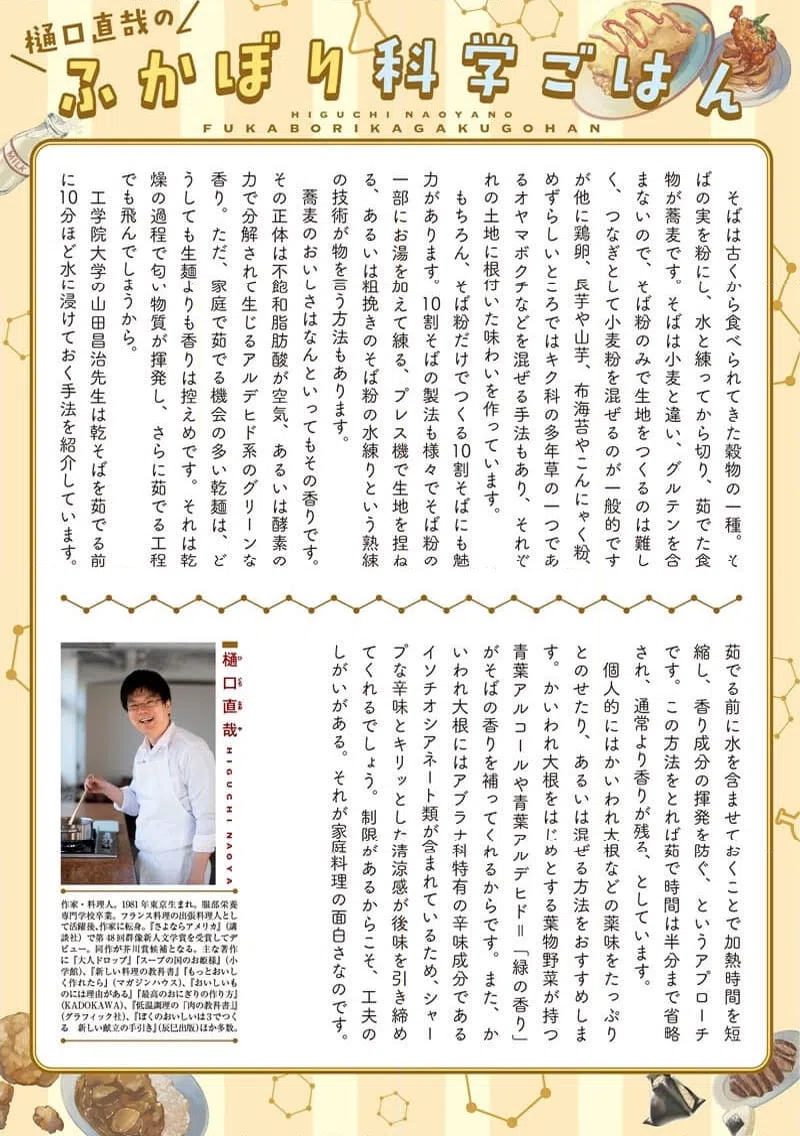 樋口直哉の
ふかぼり科学ごはん
HIGUCHI NAOYANO
FUKABORIKAGAKUGOHAN
MILK
そばは古くから食べられてきた穀物の一種。そ
ばの実を粉にし、水と練ってから切り、茹でた食
物が蕎麦です。そばは小麦と違い、グルテンを含
まないので、そば粉のみで生地をつくるのは難し
く、つなぎとして小麦粉を混ぜるのが一般的です
が他に鶏卵、長芋や山芋、布海苔やこんにゃく粉、
めずらしいところではキク科の多年草の一つであ
るオヤマボクチなどを混ぜる手法もあり、それぞ
れの土地に根付いた味わいを作っています。
もちろん、そば粉だけでつくる10割そばにも魅
力があります。10割そばの製法も様々でそば粉の
一部にお湯を加えて練る、プレス機で生地を捏ね
る、あるいは粗挽きのそば粉の水練りという熟練
の技術が物を言う方法もあります。
蕎麦のおいしさはなんといってもその香りです。
その正体は不飽和脂肪酸が空気、あるいは酵素の
力で分解されて生じるアルデヒド系のグリーンな
香り。ただ、家庭で茹でる機会の多い乾麺は、ど
うしても生麺よりも香りは控えめです。それは乾
燥の過程で匂い物質が揮発し、さらに茹でる工程
でも飛んでしまうから。
工学院大学の山田昌治先生は乾そばを茹でる前
に10分ほど水に浸けておく手法を紹介しています。
茹でる前に水を含ませておくことで加熱時間を短
縮し、香り成分の揮発を防ぐ、というアプローチ
です。この方法をとれば茹で時間は半分まで省略
され、通常より香りが残る、としています。
個人的にはかいわれ大根などの薬味をたっぷり
とのせたり、あるいは混ぜる方法をおすすめしま
す。かいわれ大根をはじめとする葉物野菜が持つ
青葉アルコールや青葉アルデヒド＝「緑の香り」
がそばの香りを補ってくれるからです。また、か
いわれ大根にはアブラナ科特有の辛味成分である
イソチオシアネート類が含まれているため、シャー
プな辛味とキリッとした清涼感が後味を引き締め
てくれるでしょう。制限があるからこそ、工夫の
しがいがある。それが家庭料理の面白さなのです。
樋口直哉
ひぐちなおや
HIGUCHI NAOYA
作家・料理人。1981年東京生まれ。服部栄養
専門学校卒業。フランス料理の出張料理人とし
て活躍後、作家に転身。『さよならアメリカ』(講
談社)で第48回群像新人文学賞を受賞してデ
ビュー。同作が芥川賞候補となる。主な著作
に『大人ドロップ』『スープの国のお姫様』(小
学館)、『新しい料理の教科書』『もっとおいし
く作れたら』(マガジンハウス)、『おいしいも
のには理由がある』『最高のおにぎりの作り方』
(KADOKAWA)、『低温調理の「肉の教科書』』
(グラフィック社)、『ぼくのおいしいは3でつく
る 新しい献立の手引き』(辰巳出版)ほか多数。